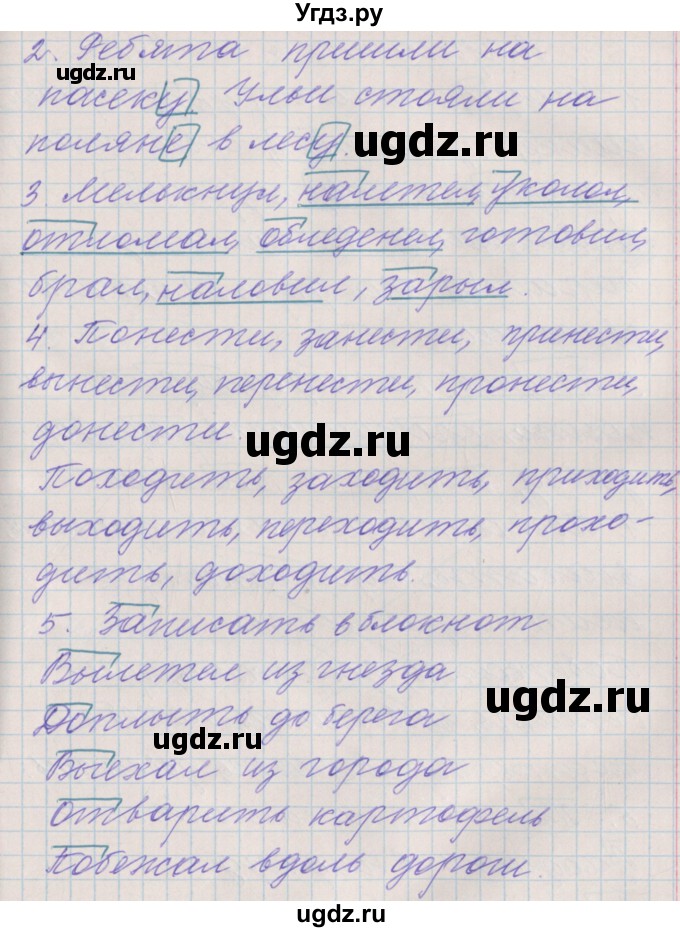 Угдз.ру
2. Ребята пришли на
ugdz.ru
пасеку. Ульи стояли на
поляне в лесу.
ugdz.ru
3. Мелькнул, налетел, уколол,
отломал, обледенел, готовил,
брал, наловил, зарыл.
4. Понести, занести, принести,
вынести, перенести, пронести,
донести
ugdz.ru
Походить, заходить, приходить,
выходить, переходить, прохо-
дить, доходить.
5. Записать в блокнот
Вылетел из гнезда
ugdz.ru
Доплыть до берега
ugdz.ru
Выехал из города
Отварить картофель
Побежал вдоль дороги.
ugdz.ru